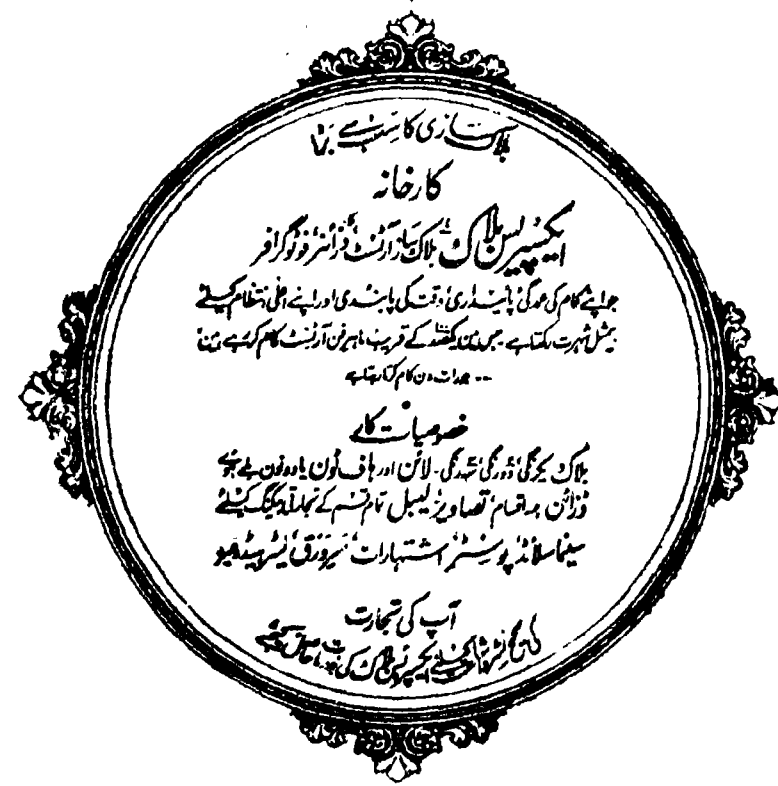 بلاک سازی کا سب سے بڑا
کارخانہ
ایکسپریس بلاک بلاک ساز، آرٹسٹ، ڈزائنر، فوٹوگرافر
جو اپنے کام کی عمدگی، پائیداری، وقت کی پابندی اور اپنے اعلیٰ انتظام کیلئے
بیمثل شہرت رکھتا ہے۔ جس میں ایک کے قریب ماہر فن آرٹسٹ کام کر رہے ہیں
جو رات دن کام کرتا رہتا ہے
خصوصیات کار
بلاک یکرنگی، دورنگی، سہ رنگی۔ لائن اور ہاف ٹون یا دونوں ملے ہوئے
ڈزائن جملہ اقسام، تصاویر، لیبل تمام قسم کے تجارتی پیکنگ کیلئے
سینما سلائڈ، پوسٹر، اشتہارات، سرورق، لیٹر ہیڈ وغیرہ
آپ کی تجارت
کی نشر و اشاعت کیلئے ایکسپریس بلاک کی خدمات حاصل کیجئے